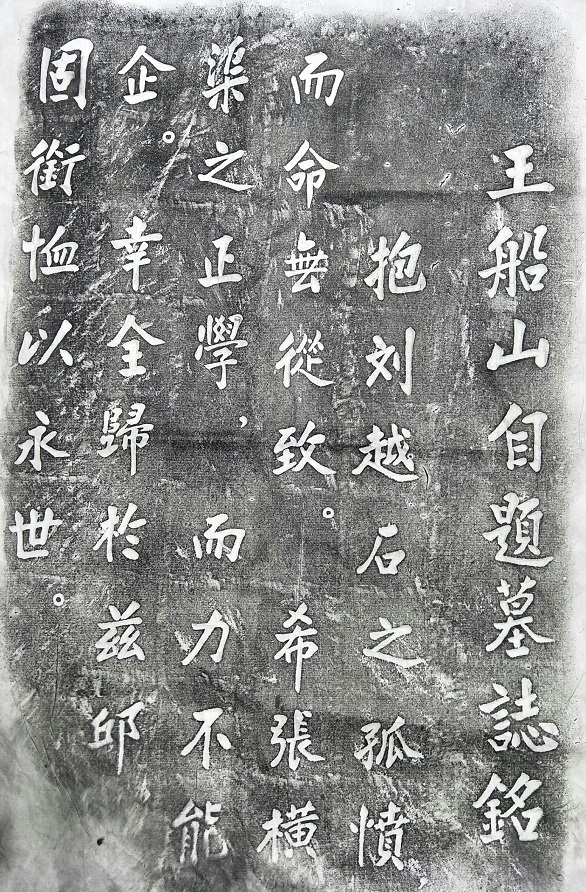 王船山自題墓誌銘
抱刘越石之孤憤，
而命無從致。希張橫
渠之正學，而力不能
企。幸全歸於兹邱
固銜恤以永世。